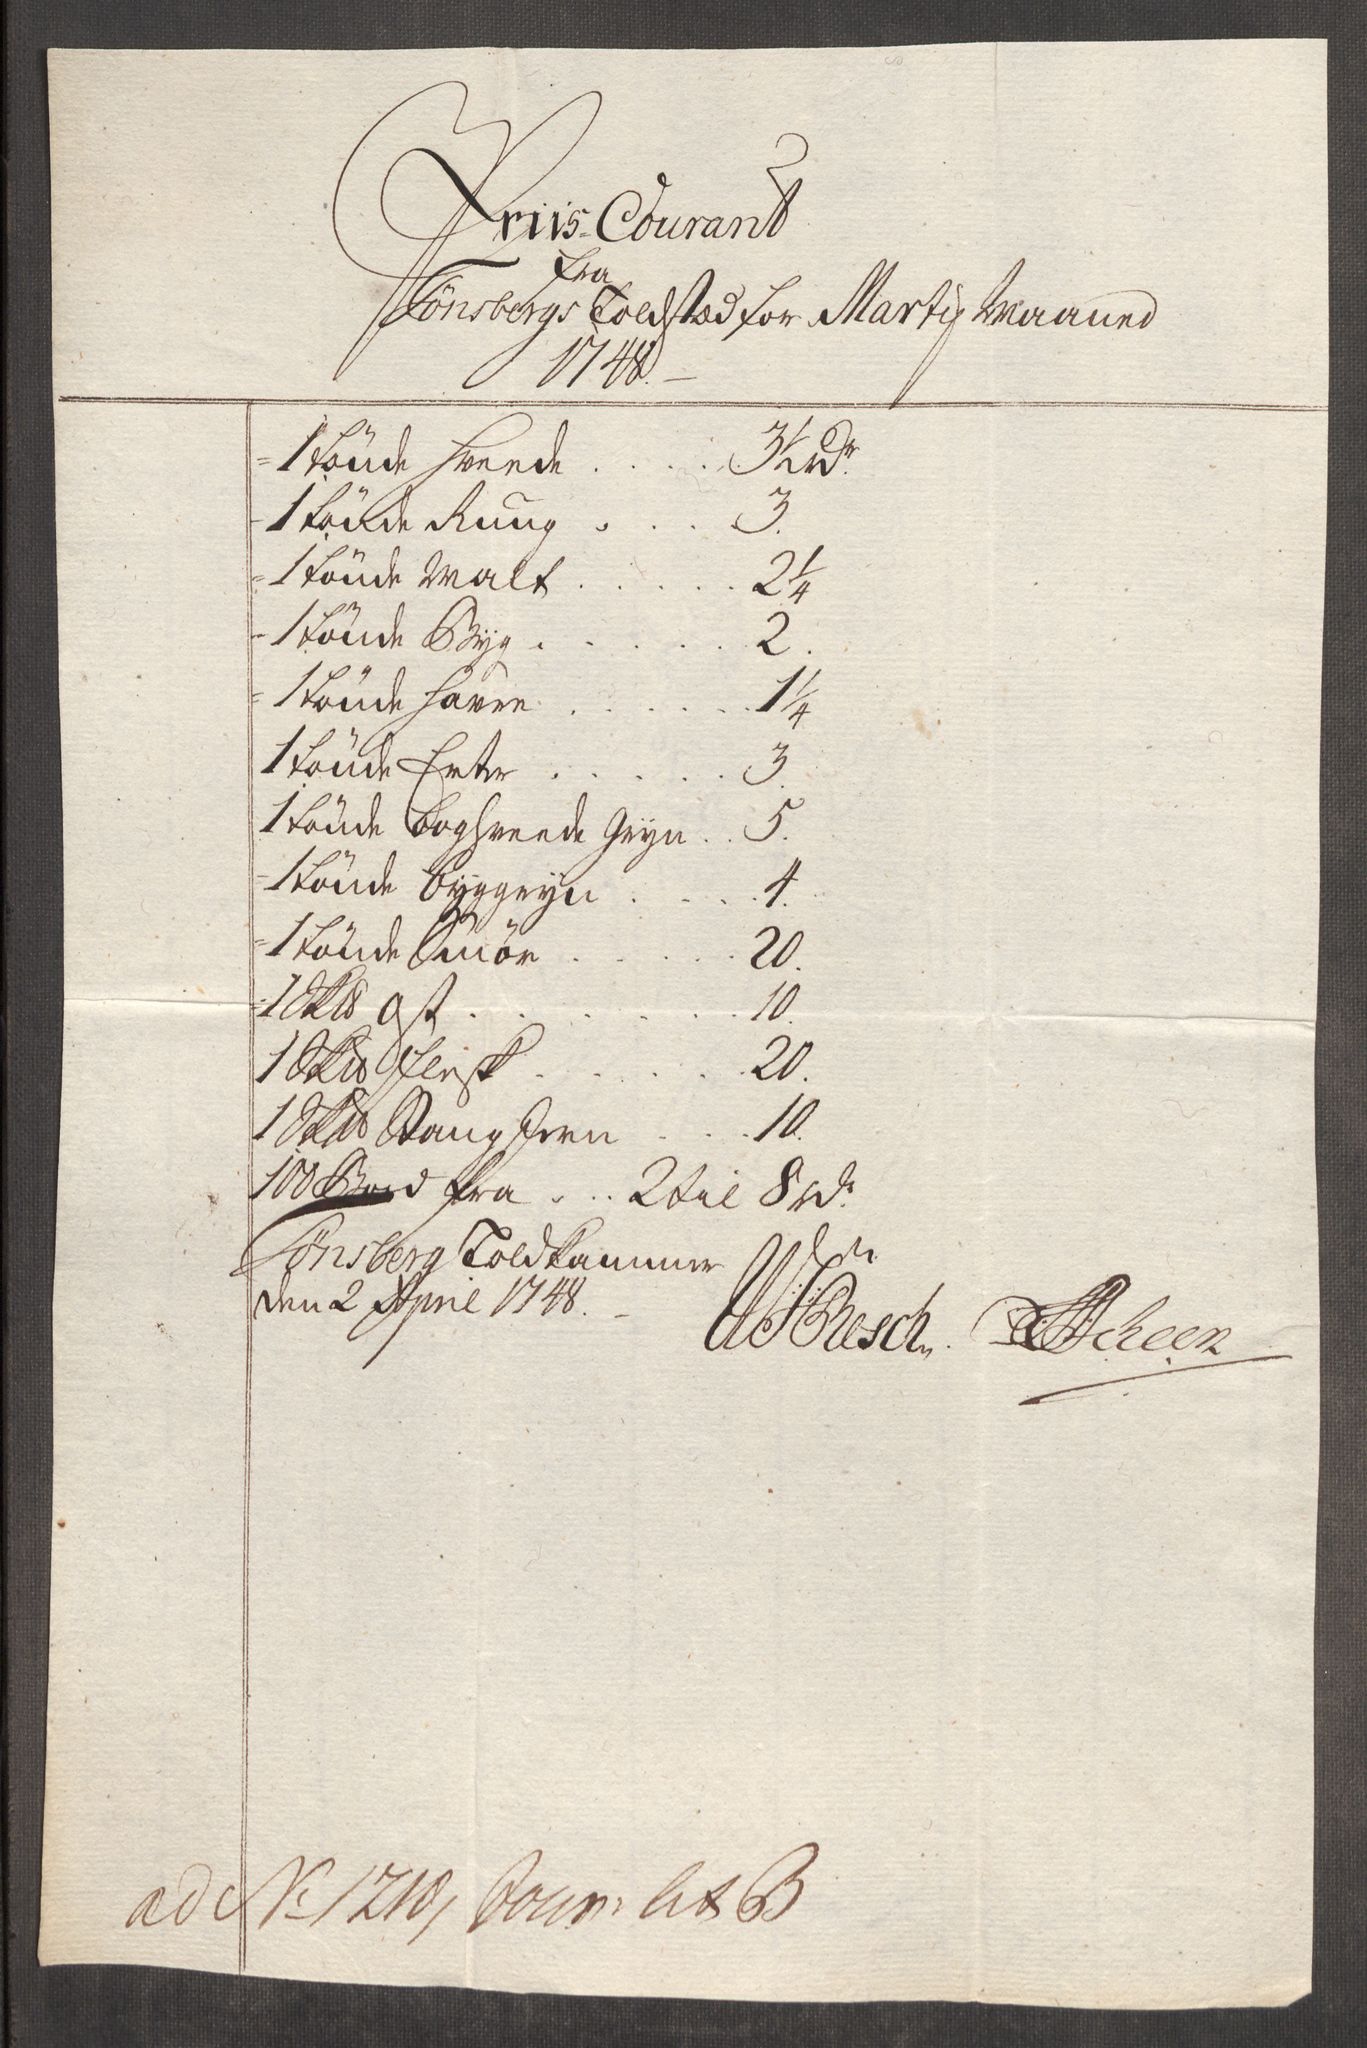 Priis-Courant
fra
Tönsbergs Toldstæd for Marty Maaned
1748.
1 tönde Hveede .... 3½ rdr.
1 tönde Rüug .... 3.
1 tönde Malt ..... 2¼
1 tönde Byg ..... 2.
1 tönde Havre ...... 1¼
1 tönde Erter ..... 3.
1 tönde Boghveede Gryn .. 5.
1 tönde byggryn .... 4.
1 tönde Smör ..... 20.
1 Sk℔ Ost ....... 10.
1 Sk℔ flesk ..... 20.
1 Sk℔ Stang Jern ... 10.
100 Bord fra ... 2 til 8 rdr.
Tönsberg Toldkammer
den 2 April 1748.
Resch. Scheen
ad No 1218, Jour: lit B